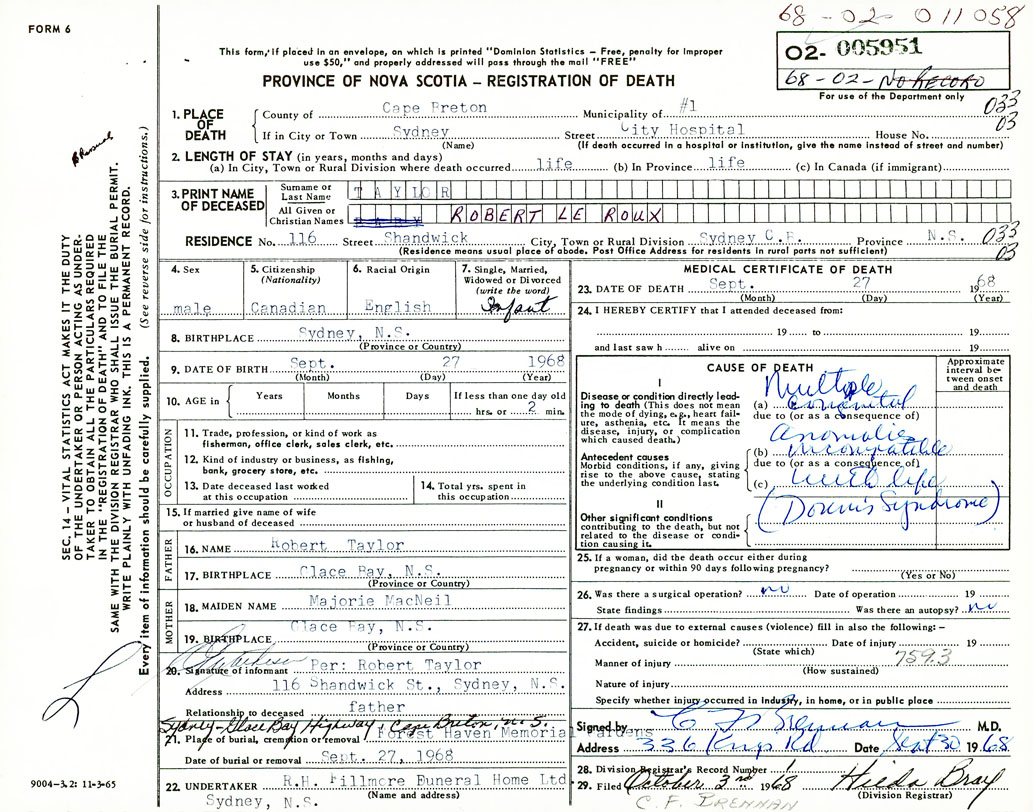 68-02-011058
FORM 6
This form, if placed in an envelope, on which is printed "Dominion Statistics – Free, penalty for improper
use $50," and properly addressed will pass through the mail "FREE"
02- 005951
68-02-No RECORD
For use of the Department only
PROVINCE OF NOVA SCOTIA – REGISTRATION OF DEATH
033
03
1. PLACE OF DEATH
County of Cape Breton Municipality of #1
If in City or Town Sydney Street City Hospital House No.
(Name) (If death occurred in a hospital or institution, give the name instead of street and number)
2. LENGTH OF STAY (in years, months and days)
(a) In City, Town or Rural Division where death occurred life (b) In Province life (c) In Canada (if immigrant)
3. PRINT NAME OF DECEASED
Surname or Last Name TAYLOR
All Given or Christian Names BABY ROBERT LE ROUX
RESIDENCE No. 116 Street Shandwick City, Town or Rural Division Sydney C.B. Province N.S. 033
03
(Residence means usual place of abode. Post Office Address for residents in rural parts not sufficient)
4. Sex
male
5. Citizenship
(Nationality)
Canadian
6. Racial Origin
English
7. Single, Married,
Widowed or Divorced
(write the word)
Infant
8. BIRTHPLACE Sydney, N.S.
(Province or Country)
9. DATE OF BIRTH Sept. 27 1968
(Month) (Day) (Year)
10. AGE in
Years Months Days If less than one day old
hrs. or 2 min.
OCCUPATION
11. Trade, profession, or kind of work as
fisherman, office clerk, sales clerk, etc.
12. Kind of industry or business, as fishing,
bank, grocery store, etc.
13. Date deceased last worked
at this occupation
14. Total yrs. spent in
this occupation
15. If married give name of wife
or husband of deceased
FATHER
16. NAME Robert Taylor
17. BIRTHPLACE Clace Bay, N.S.
(Province or Country)
MOTHER
18. MAIDEN NAME Majorie MacNeil
19. BIRTHPLACE Clace Bay, N.S.
(Province or Country)
20. Signature of informant Per: Robert Taylor
Address 116 Shandwick St., Sydney, N.S.
Relationship to deceased father
Sydney-Glace Bay Highway, Cape Breton, N.S.
21. Place of burial, cremation or removal Forest Haven Memorial Gardens
Date of burial or removal Sept. 27, 1968
22. UNDERTAKER R.H. Fillmore Funeral Home Ltd.
Sydney, N.S. (Name and address)
MEDICAL CERTIFICATE OF DEATH
23. DATE OF DEATH Sept. 27 1968
(Month) (Day) (Year)
24. I HEREBY CERTIFY that I attended deceased from:
19 to 19
and last saw h alive on 19
CAUSE OF DEATH
Approximate
interval be-
tween onset
and death
I
Disease or condition directly lead-
ing to death (This does not mean
the mode of dying, e.g., heart fail-
ure, asthenia, etc. It means the
disease, injury, or complication
which caused death.)
Multiple
(a) congenital
due to (or as a consequence of)
Anomalies
Antecedent causes
Morbid conditions, if any, giving
rise to the above cause, stating
the underlying condition last.
(b) incompatible
due to (or as a consequence of)
(c) with life
II
Other significant conditions
contributing to the death, but not
related to the disease or condi-
tion causing it.
(Down's Syndrome)
25. If a woman, did the death occur either during
pregnancy or within 90 days following pregnancy?
(Yes or No)
26. Was there a surgical operation? no Date of operation 19
State findings Was there an autopsy? no
27. If death was due to external causes (violence) fill in also the following: –
Accident, suicide or homicide? Date of injury 19
(State which)
759.3
Manner of injury
(How sustained)
Nature of injury
Specify whether injury occurred in Industry, in home, or in public place
Signed by C F Brennan M.D.
Address 336 Kings Rd Date Sept 30 1968
28. Division Registrar's Record Number
29. Filed October 2nd 1968 Hilda Bray
(Division Registrar)
C. F. BRENNAN
SEC. 14 – VITAL STATISTICS ACT MAKES IT THE DUTY
OF THE UNDERTAKER OR PERSON ACTING AS UNDER-
TAKER TO OBTAIN ALL THE PARTICULARS REQUIRED
IN THE "REGISTRATION OF DEATH" AND TO FILE THE
SAME WITH THE DIVISION REGISTRAR WHO SHALL ISSUE THE BURIAL PERMIT.
WRITE PLAINLY WITH UNFADING INK. THIS IS A PERMANENT RECORD.
Every item of information should be carefully supplied. (See reverse side for instructions.)
9004-3.2: 11-3-65